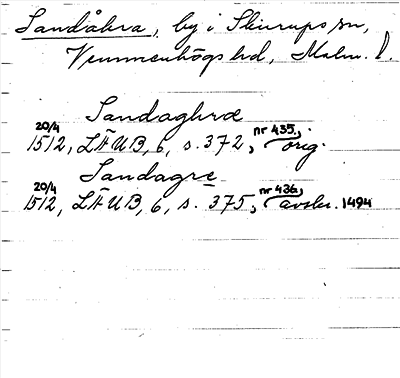 Sandåkra, by i Skurups sn,
Vemmenhögs hd, Malm. l.
Sandaghræ
20/4 1512, LÄUB, 6, s. 372, nr 435, orig.
Sandagre
20/4 1512, LÄUB, 6, s. 375, nr 436, avskr. 1494